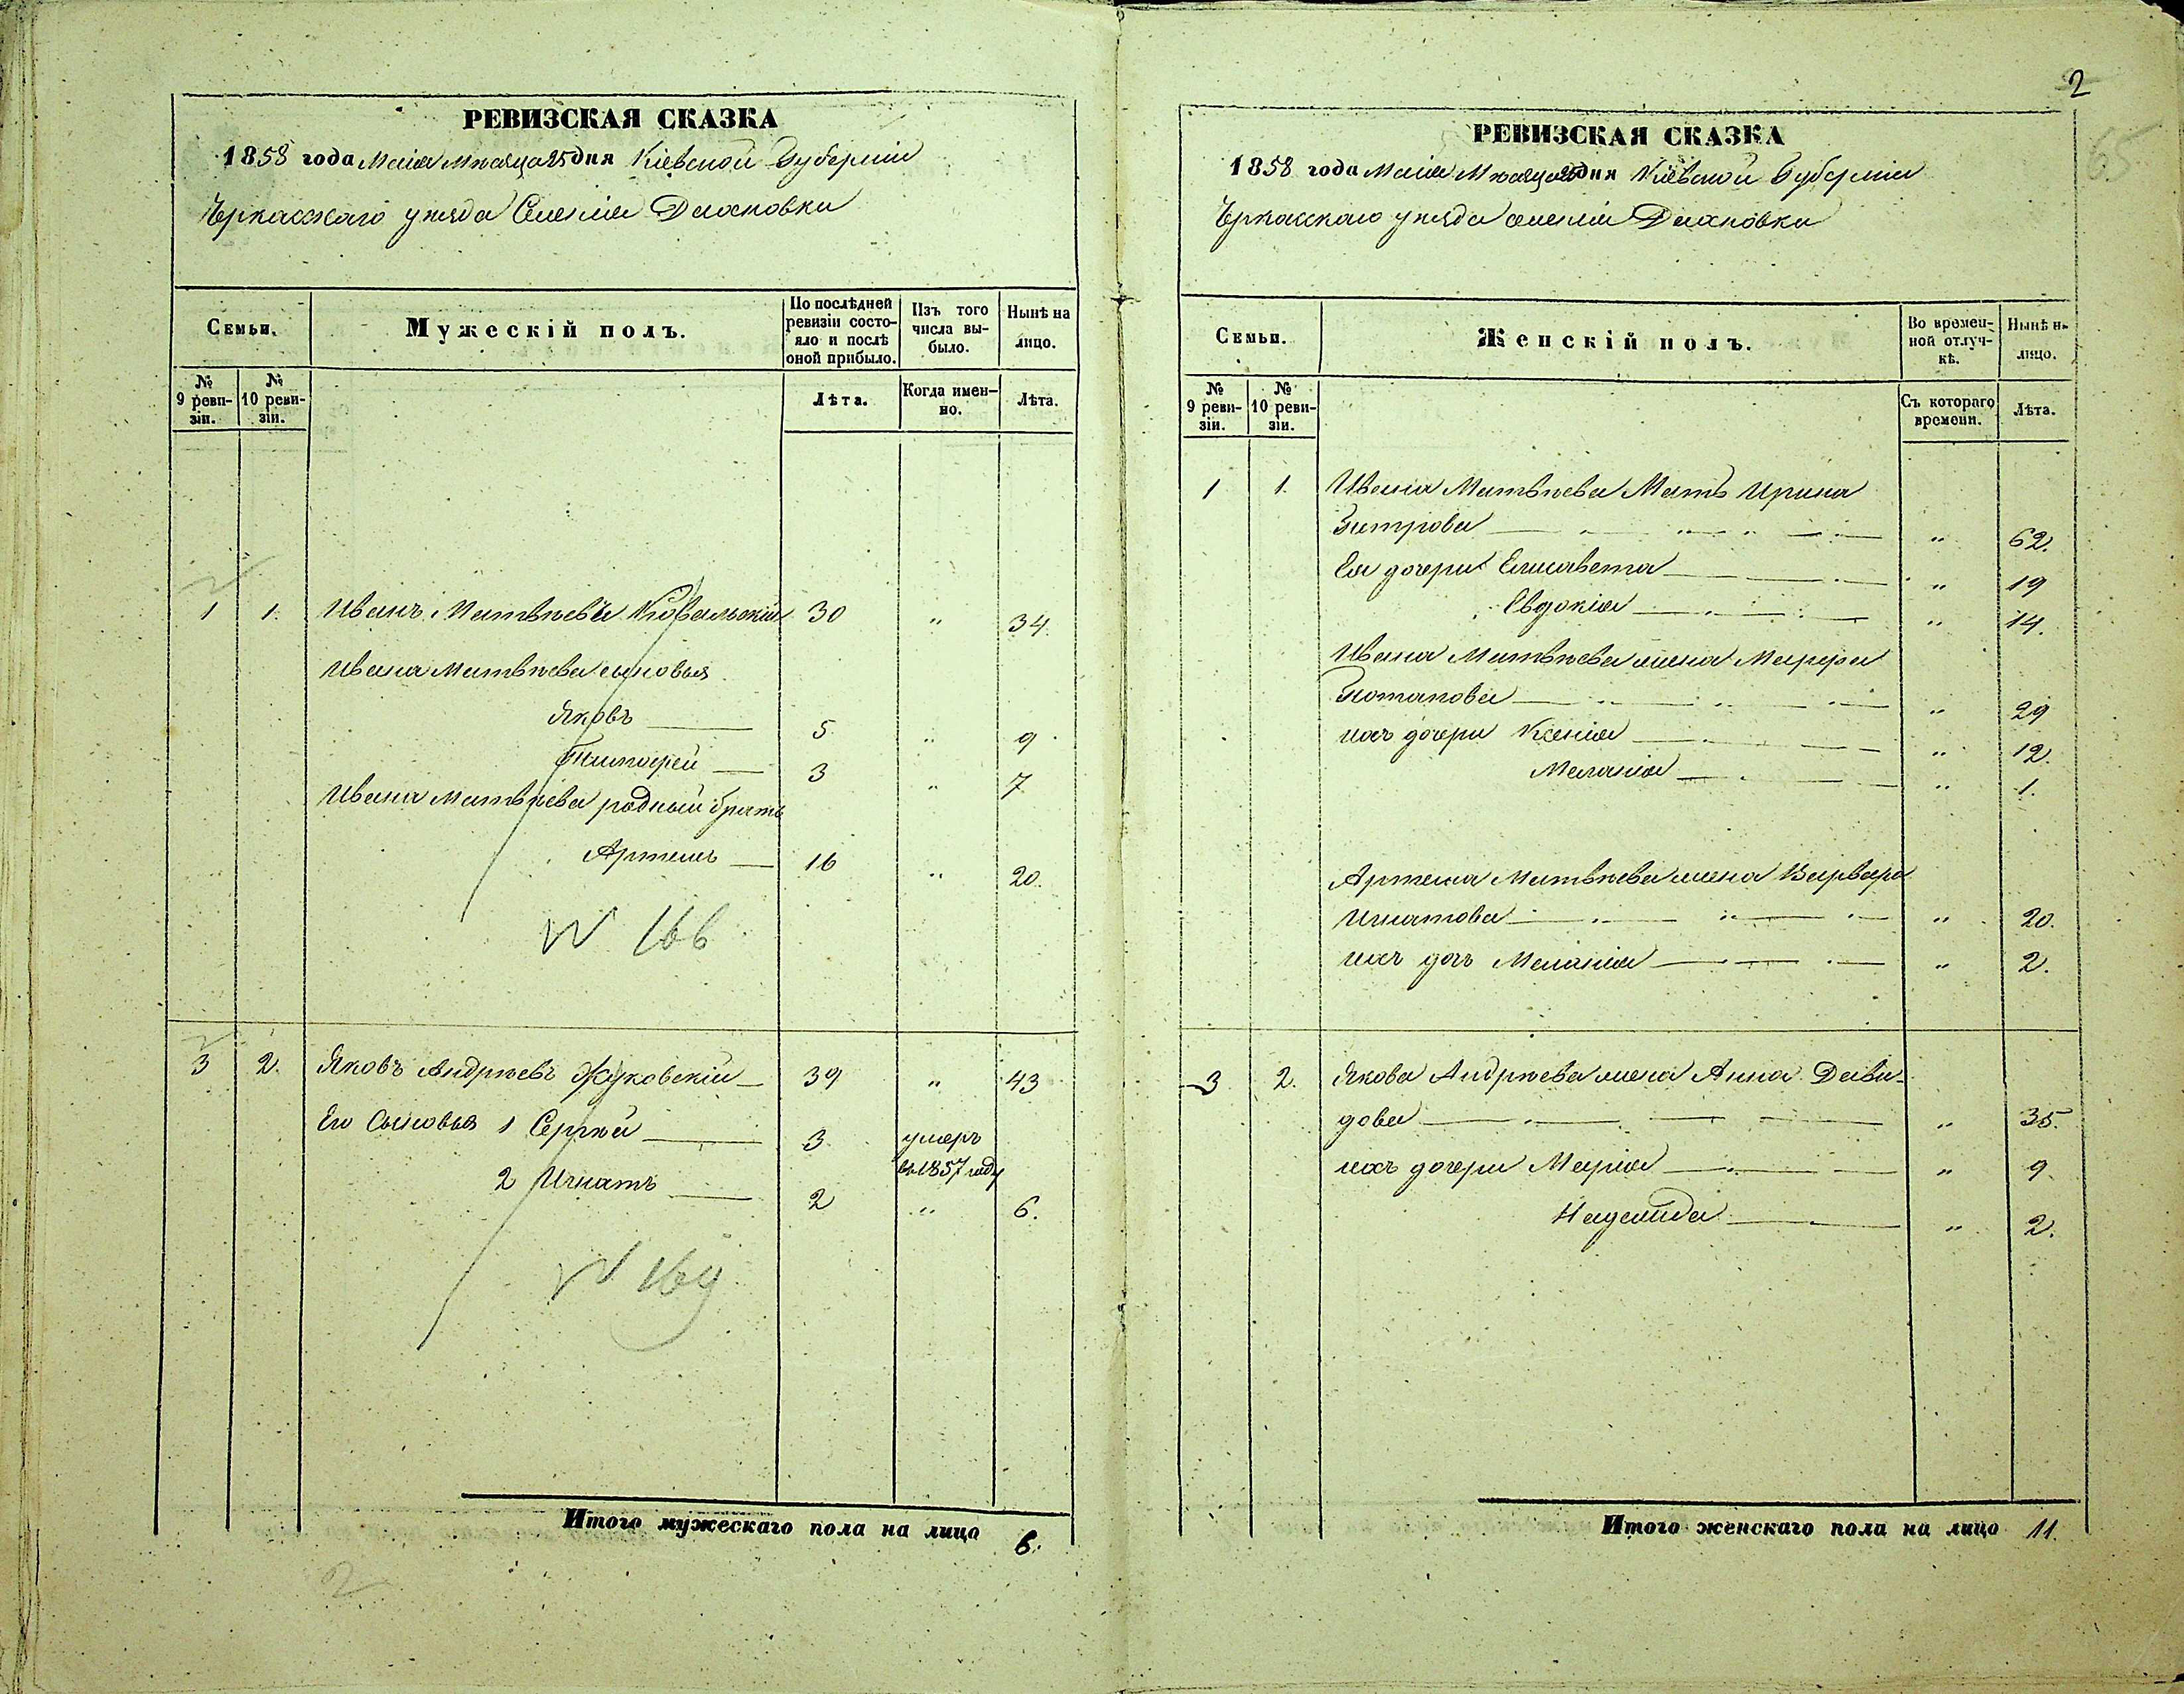 2
РЕВИЗСКАЯ СКАЗКА
1858 года Маія Мѣсяца 25 дня Кіевской Губерніи
Черкасскаго уѣзда Имѣнія
Семьи.
Мужескій полъ.
По послѣдней ревизіи состояло и послѣ оной прибыло.
Изъ того числа выбыло.
Нынѣ на лицо.
№ 9 ревизіи.
№ 10 ревизіи.
Лѣта.
Когда именно.
Лѣта.
1 1. Иванъ Матвѣевъ Ковальскій 30 " 34.
Ивана Матвѣева сыновья
Яковъ 5 " 9
Тимофей 3 " 7
Ивана Матвѣева родный братъ
Артемъ 16 " 20.
N 166
3 2. Яковъ Андрѣевъ Жуковскій 39 " 43
Его Сыновья 1 Сергѣй 3 умеръ
въ 1857 году
2 Игнатъ 2 " 6.
N 169
Итого мужескаго пола на лицо 6.
2
РЕВИЗСКАЯ СКАЗКА
1858 года Маія Мѣсяца 25 дня Кіевской Губерніи
Черкасскаго уѣзда имѣнія
Семьи.
Женскій полъ.
Во временной отлучкѣ.
Нынѣ на лицо.
№ 9 ревизіи.
№ 10 ревизіи.
Съ котораго времени.
Лѣта.
1 1. Ивана Матвѣева Мать Ирина
" 62.
Ея дочери Елисавета " 19
Евдокія " 14.
Ивана Матвѣева жена Марфа
Потапова " 29
ихъ дочери Ксенія " 12.
Меланія " 1.
Артема Матвѣева жена Варвара
Игнатова " 20.
ихъ дочь Меланія " 2.
3 2. Якова Андрѣева жена Анна Дави-
дова " 35.
ихъ дочери Марія " 9.
" 2.
Итого женскаго пола на лицо 11.